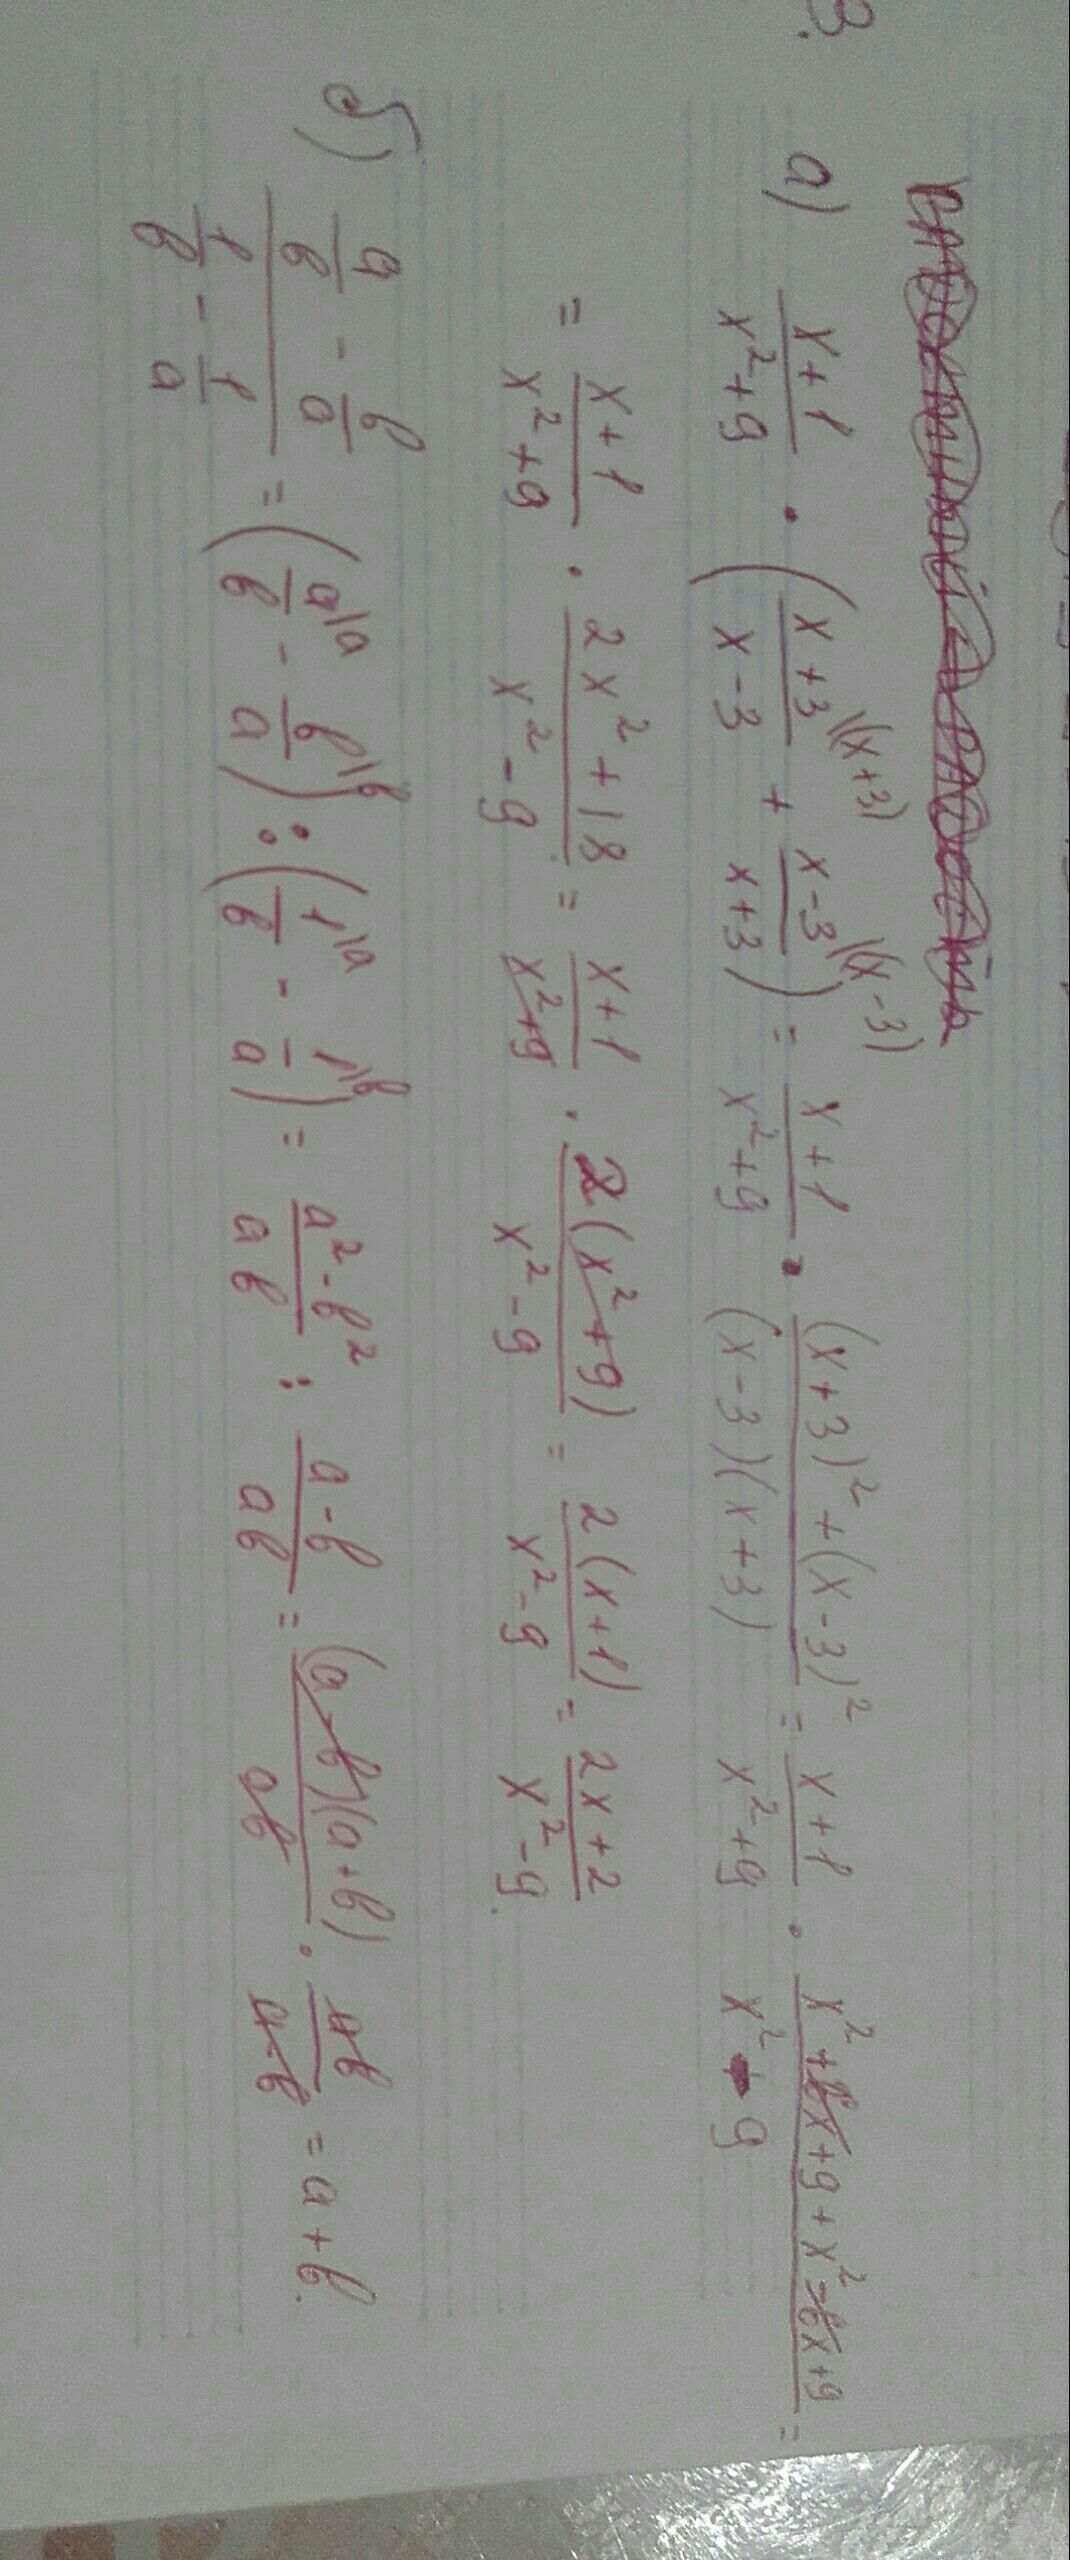 3.
а) \frac{x+1}{x^2+9} \cdot \left(\frac{x+3}{x-3}^{\backslash(x+3)} + \frac{x-3}{x+3}^{\backslash(x-3)}\right) = \frac{x+1}{x^2+9} \cdot \frac{(x+3)^2+(x-3)^2}{(x-3)(x+3)} = \frac{x+1}{x^2+9} \cdot \frac{x^2+6x+9+x^2-6x+9}{x^2-9} =
= \frac{x+1}{x^2+9} \cdot \frac{2x^2+18}{x^2-9} = \frac{x+1}{x^2+9} \cdot \frac{2(x^2+9)}{x^2-9} = \frac{2(x+1)}{x^2-9} = \frac{2x+2}{x^2-9}.
б) \frac{\frac{a}{b} - \frac{b}{a}}{\frac{1}{b} - \frac{1}{a}} = \left(\frac{a}{b}^{\backslash a} - \frac{b}{a}^{\backslash b}\right) : \left(\frac{1}{b}^{\backslash a} - \frac{1}{a}^{\backslash b}\right) = \frac{a^2-b^2}{ab} : \frac{a-b}{ab} = \frac{(a-b)(a+b)}{ab} \cdot \frac{ab}{a-b} = a+b.